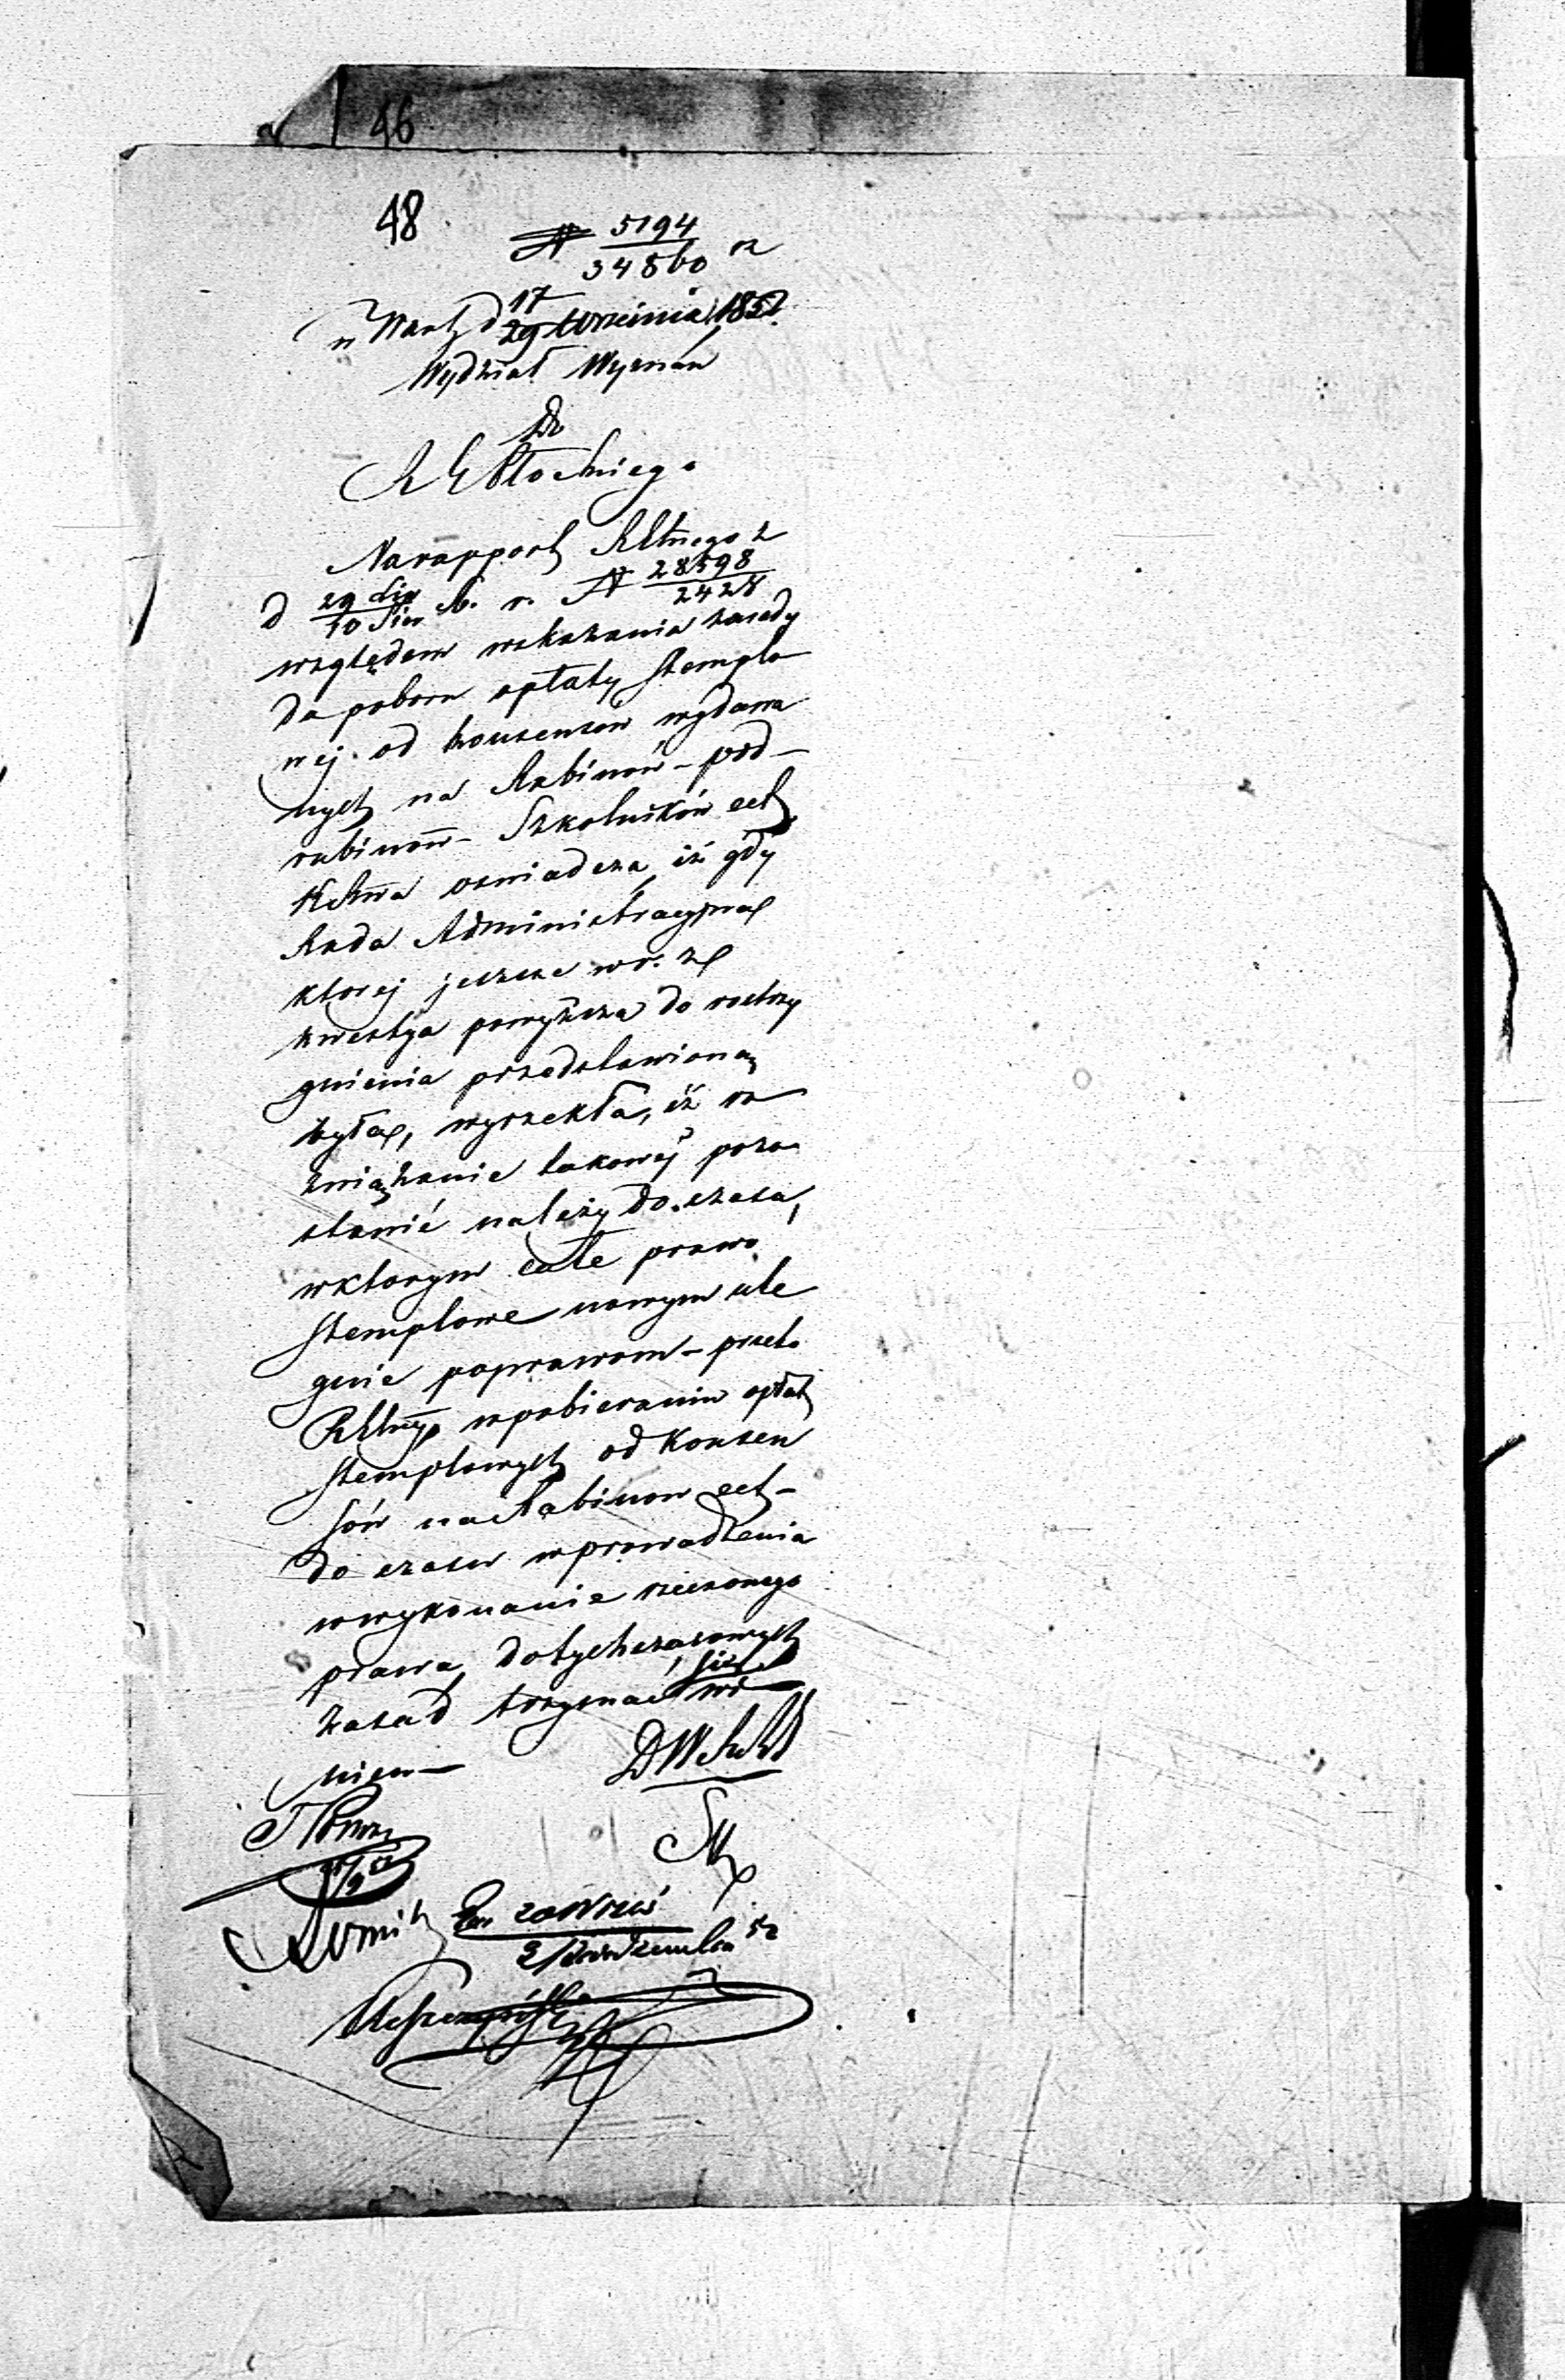 46
48
N 5194
34560
w Warsz d 17
29 Września 1852
Wydział Wyznań
Do
R G Płockiego
Na rapport RGtnego z
d 29 Lip
10 Sier b. r. N 28598
2428
względem wskazania zasady
do poboru opłaty stemplo
wej od konsensow wydawa
nych na Rabinów - pod-
rabinow - Szkolników ect
KRswa oswiadcza, iż gdy
Rada Administracyjna
ktorej jeszcze w r. z.
kwestya powyższa do rostrzy
gnienia przedstawioną
była, wyrzekła, iż roz
wiązanie takowej pozo
stawić należy do czasu,
w ktorym całe prawo
stemplowe nowym ule
gnie poprawom - przeto
w pobieraniu opłat
stemplowych od Konsen
sów na Rabinow ect -
do czasu wprowadzenia
w wykonanie rzeczonego
prawa, dotychczasowych
zasad trzymać się wi
nien -
20 Wrześ
2 Październ 52